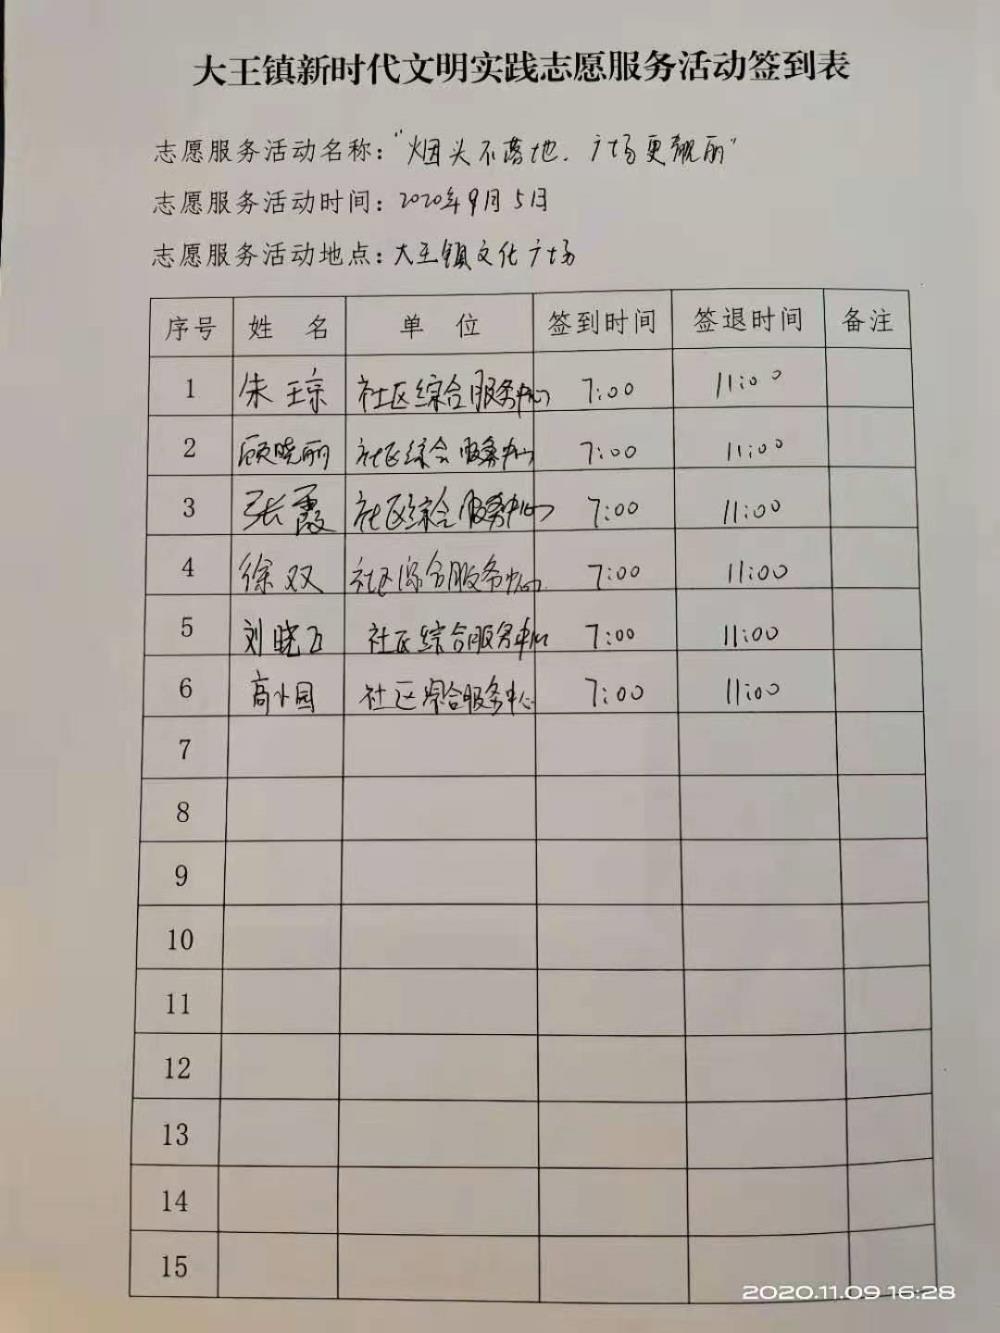 大王镇新时代文明实践志愿服务活动签到表
志愿服务活动名称："烟头不落地．广场更靓丽"
志愿服务活动时间：2020年9月5日
志愿服务活动地点：大王镇文化广场
序号 姓 名 单 位 签到时间 签退时间 备注
1 朱琼 社区综合服务中心 7:00 11:00
2 顾晓丽 社区综合服务中心 7:00 11:00
3 张霞 社区综合服务中心 7:00 11:00
4 徐双 社区综合服务中心 7:00 11:00
5 刘晓 社区综合服务中心 7:00 11:00
6 高小园 社区综合服务中心 7:00 11:00
7
8
9
10
11
12
13
14
15
2020.11.09 16:28